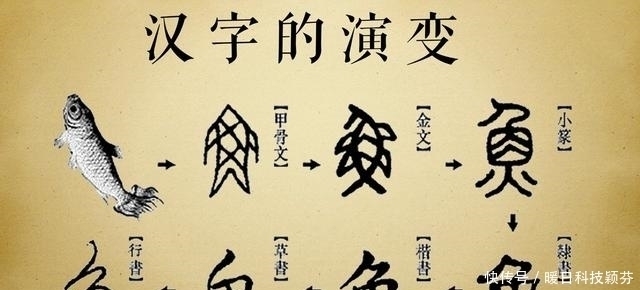 汉字的演变
【甲骨文】
【金文】
【小篆】
魚
【行書】
【草書】
【楷書】
【隸書】
快传号／暖日科技颖芬